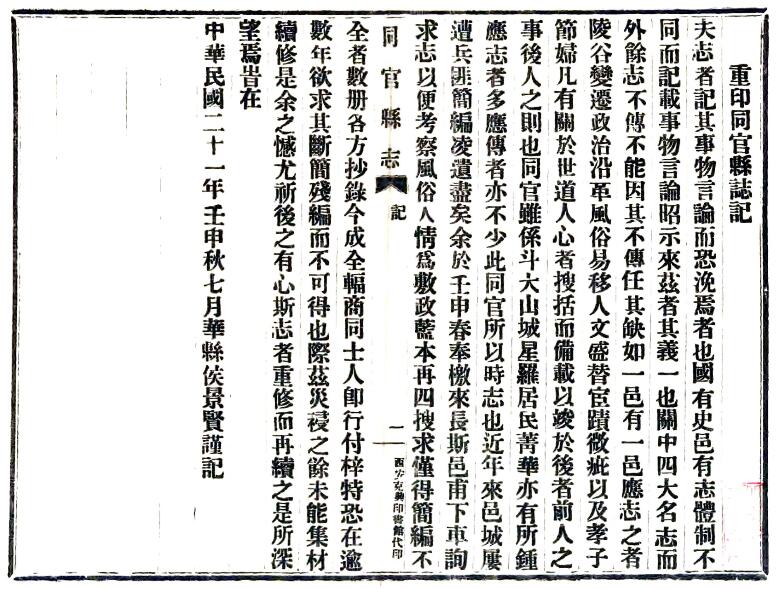 重印同官縣誌記
夫志者記其事物言論而恐浼焉者也國有史邑有志體制不
同而記載事物言論昭示來茲者其義一也關中四大名志而
外餘志不傳不能因其不傳任其缺如一邑有一邑應志之者
陵谷變遷政治沿革風俗易移人文盛替宦蹟微疵以及孝子
節婦凡有關於世道人心者搜括而備載以竣於後者前人之
事後人之則也同官雖係斗大山城星羅居民菁華亦有所鍾
應志者多應傳者亦不少此同官所以時志也近年來邑城屢
遭兵匪簡編凌遺盡矣余於壬申春奉檄來長斯邑甫下車詢
求志以便考察風俗人情爲敷政藍本再四搜求僅得簡編不
同官縣志
記
一
西安克興印書館代印
全者數册各方抄錄今成全輻商同士人卽行付梓特恐在遠
數年欲求其斷簡殘編而不可得也際茲災祲之餘未能集材
續修是余之憾尤祈後之有心斯志者重修而再續之是所深
望焉旹在
中華民國二十一年壬申秋七月華縣侯景賢謹記